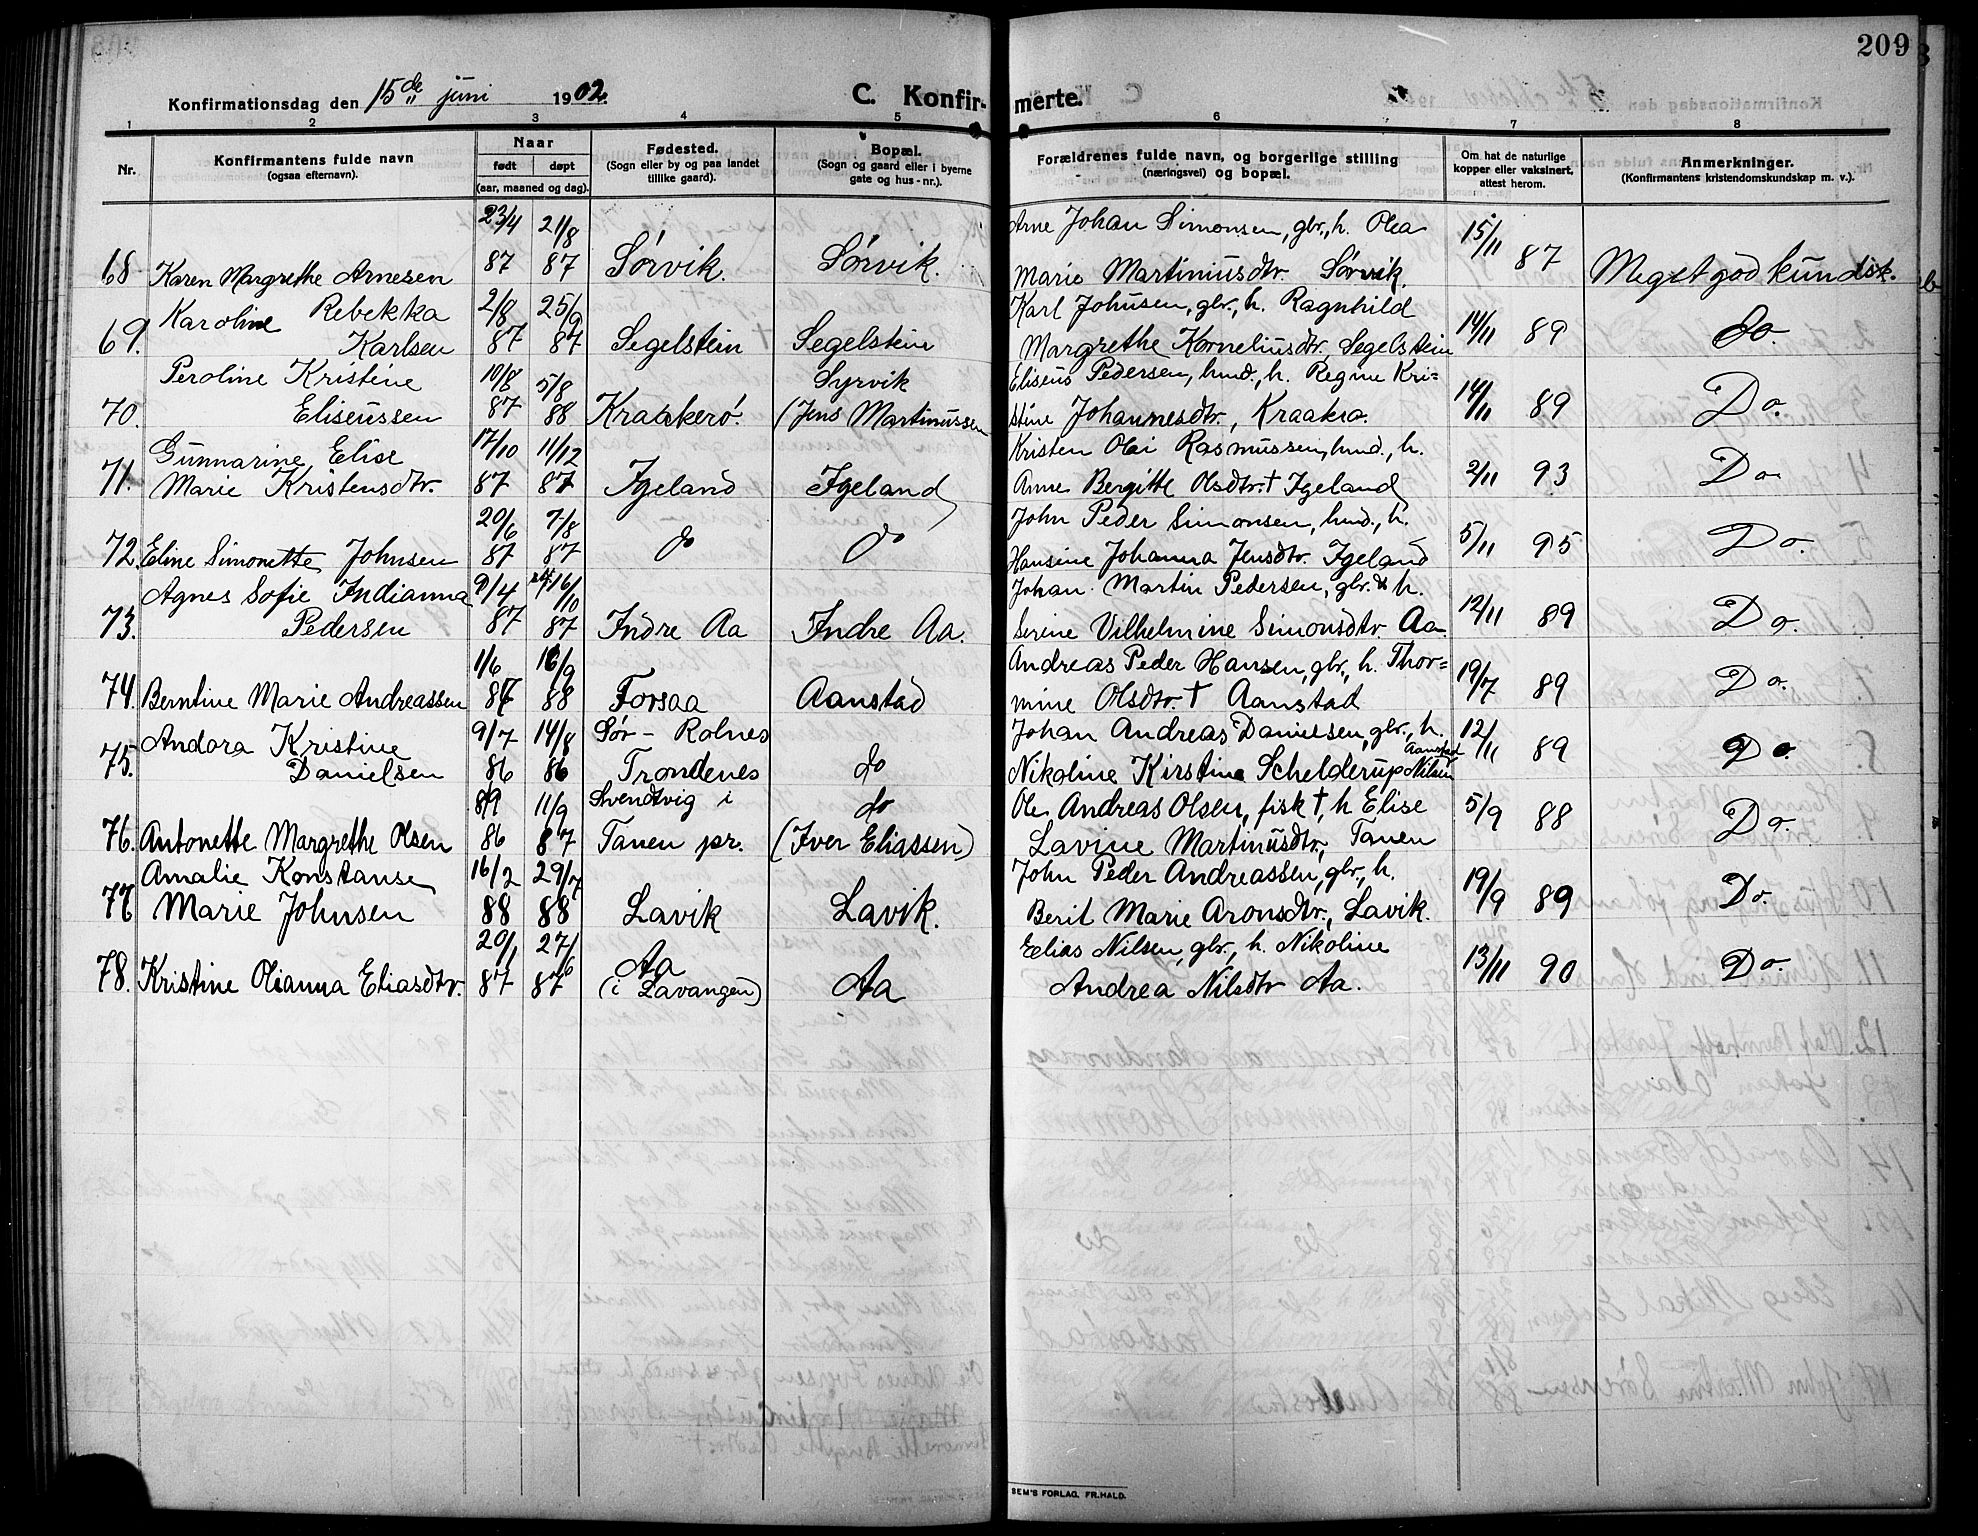 209
Konfirmationsdag den 15de juni 1902. C. Konfir- merte.
1 2 3 4 5 6 7 8
Nr. Konfirmantens fulde navn (ogsaa efternavn). Naar født døpt (aar, maaned og dag). Fødested. (Sogn eller by og paa landet tillike gaard). Bopæl. (Sogn og gaard eller i byerne gate og hus-nr.). Forældrenes fulde navn, og borgerlige stilling (næringsvei) og bopæl. Om hat de naturlige kopper eller vaksinert, attest herom. Anmerkninger. (Konfirmantens kristendomskundskap m. v.).
23/4 21/8 Arne Johan Simonsen, gbr., h. Olea 15/11
68 Karen Margrethe Arnesen 87 87 Sørvik. Sørvik. Marie Martiniusdtr. Sørvik. 87 Meget god kundsk.
Karoline Rebekka 2/8 25/9 Karl Johnsen, gbr., h. Ragnhild 14/11
69. Karlsen 87 87 Segelstein Segelstein Margrethe Korneliusdtr. Segelstein 89 do.
Peroline Kristine 10/8 5/8 Syrvik Eliseus Pedersen, hmd., h. Regine Kri= 14/11
70. Eliseussen 87 88 Kraakerø. (Jens Martinussen stine Johannesdtr., Kraakrø. 89 Do.
Gunnarine Elise 17/10 11/12 Kristen Olai Rasmussen, hmd., h. 2/11
71. Marie Kristensdtr. 87 87 Igeland Igeland Anne Bergitte Olsdtr. † Igeland 93 Do
20/6 7/8 John Peder Simonsen, hmd., h. 5/11
72. Eline Simonette Johnsen 87 87 do do Hansine Johanna Jensdtr. Igeland 95 Do.
Agnes Sofie Indianna 9/4 16/10 Johan Martin Pedersen, gbr. & h. 12/11
73. Pedersen 87 87 Indre Aa Indre Aa. Serine Vilhelmine Simonsdtr Aa. 89 Do.
1/6 16/9 Andreas Peder Hansen, gbr., h. Thor= 19/7
74. Berntine Marie Andreassen 87 88 Forsaa Aanstad mine Olsdtr. † Aanstad 89 Do.
Andora Kristine 9/7 14/8 Sør-Rolnes Johan Andreas Danielsen, gbr., h. 12/11
75. Danielsen 86 86 Trondenes do Nikoline Kirstine Schelderup Nilsen Aanstad 89 Do.
8/9 11/9 Svendsvig i do Ole Andreas Olsen, fisk †, h Elise 5/9
76. Antonette Margrethe Olsen 86 87 Tanen pr. (Iver Eliassen) Lavine Martinusdtr., Tanen 88 Do.
Amalie Konstanse 16/2 29/7 John Peder Andreassen, gbr., h. 19/9
77 Marie Johnsen 88 88 Lavik Lavik. Berit Marie Aronsdtr., Lavik. 89 Do.
20/1 27/6 Aa Elias Nilsen, gbr., h. Nikoline 13/11
78. Kristine Olianna Eliasdtr. 87 87 (i Lavangen) Aa Andrea Nilsdtr Aa. 90 Do.
SEM'S FORLAG, FR.HALD.